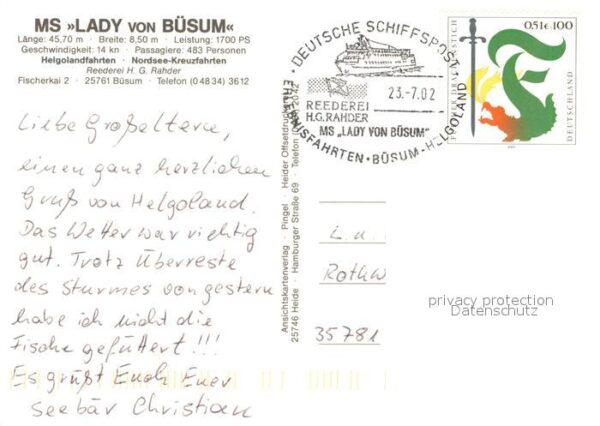 MS »LADY VON BÜSUM«
Länge: 45,70 m · Breite: 8,50 m · Leistung: 1700 PS
Geschwindigkeit: 14 kn · Passagiere: 483 Personen
Helgolandfahrten · Nordsee-Kreuzfahrten
Reederei H. G. Rahder
Fischerkai 2 · 25761 Büsum · Telefon (0 48 34) 3612
Liebe Großeltern,
einen ganz herzlichen
Gruß von Helgoland.
Das Wetter war richtig
gut. Trotz Überreste
des Sturmes von gestern
habe ich nicht die
Fische gefüttert!!!
Es grüßt Euch Euer
Seebär Christian
Ansichtskartenverlag · Pingel · Heider Offsetdruckerei
25746 Heide · Hamburger Straße 69 · Telefon
2042
DEUTSCHE SCHIFFSPOST
REEDEREI
H.G.RAHDER
MS "LADY VON BÜSUM"
23.-7.02
ERLEBNISFAHRTEN · BÜSUM-HELGOLAND
0,51€+100
DEUTSCHLAND
L. u.
Rothw
35781
privacy protection
Datenschutz